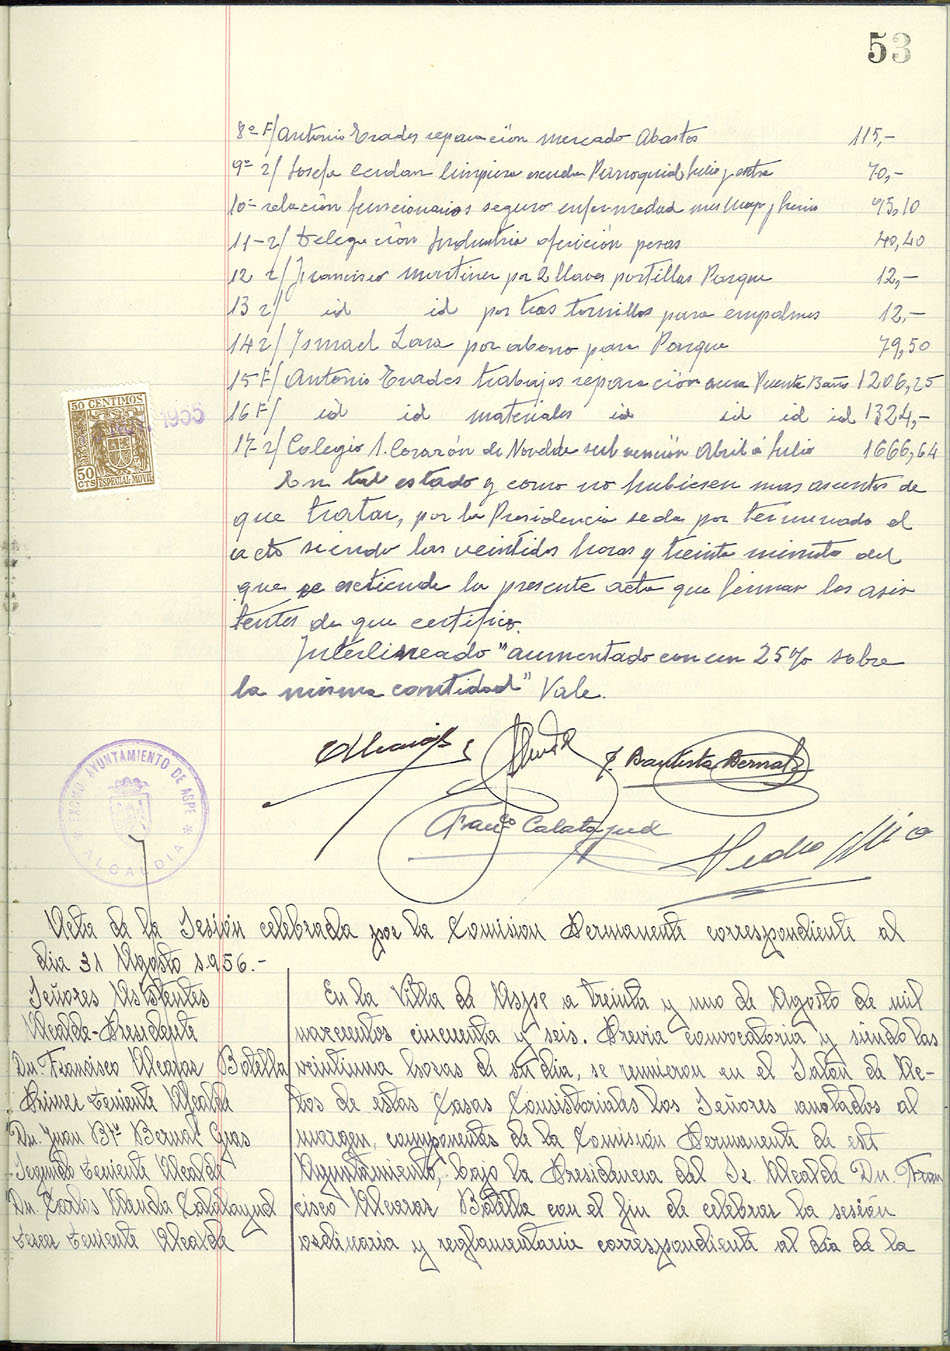 53
8º F/ Antonio Erades reparación mercado Abastos 115,-
9º r/ Josefa Cerdan limpieza escuelas Parroquial Julio y otra 70,-
10- relación funcionarios seguro enfermedad mes Mayo y Junio 95,10
11- r/ Delegación Industria afición pesas 40,40
12 r/ Francisco Martinez por 2 llaves portillas Parque 12,-
13 r/ id id por tres tornillos para empalmes 12,-
14 r/ Ismael Lara por abono para Parque 79,50
15 F/ Antonio Erades trabajos reparación Puente Baños 1206,25
16 F/ id id materiales id id id id 1324,-
17- r/ Colegio S. Corazón de Novelda subvención Abril á Julio 1666,64
50 CENTIMOS
50 CTS ESPECIAL MOVIL
En tal estado y como no hubiesen mas asuntos de
que tratar, por la Presidencia se da por terminado el
acto siendo las veintidos horas y treinta minutos del
que se extiende la presente acta que firman los asis
tentes de que certifico.
Interlineado "aumentado con un 25% sobre
la misma cantidad" Vale.
EXCMO AYUNTAMIENTO DE ASPE
ALCALDIA
J. Bautista Bernal
Franco Calatayud
Pedro Mico
Acta de la Sesión celebrada por la Comision Permanente correspondiente al
dia 31 Agosto 1.956.-
Señores Asistentes
Alcalde-Presidente
Dn. Francisco Alcaraz Botella
Primer Teniente Alcalde
Dn. Juan Bta Bernal Gras
Segundo Teniente Alcalde
Dn. Carlos Calatayud
Tercer Teniente Alcalde
En la Villa de Aspe a treinta y uno de Agosto de mil
novecientos cincuenta y seis. Previa convocatoria y siendo las
veintiuna horas de su dia, se reunieron en el Salón de Ac-
tos de estas Casas Consistoriales los Señores anotados al
margen, componentes de la Comisión Permanente de este
Ayuntamiento, bajo la Presidencia del Sr. Alcalde Dn. Fran
cisco Alcaraz Botella con el fin de celebrar la sesión
ordinaria y reglamentaria correspondiente al dia de la